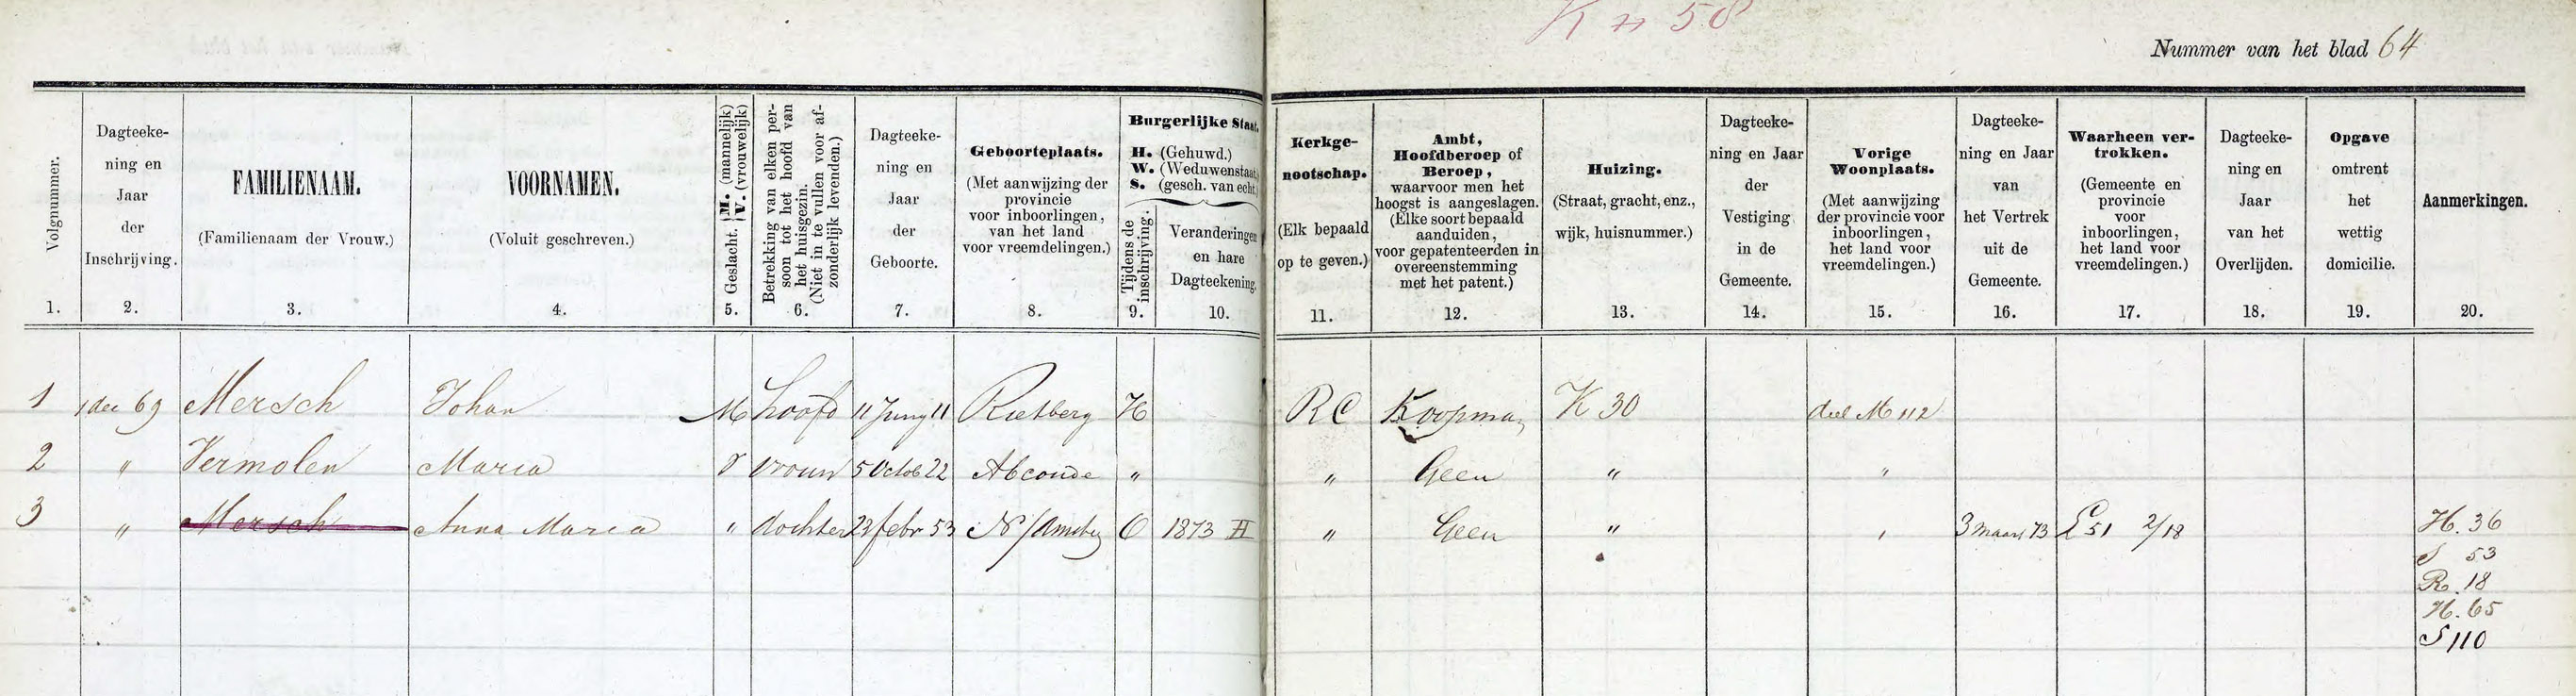 K 58
Nummer van het blad 64
Volgnummer.
1.
Dagteeke-
ning en
Jaar
der
Inschrijving.
2.
FAMILIENAAM.
(Familienaam der Vrouw.)
3.
VOORNAMEN.
(Voluit geschreven.)
4.
Geslacht. M. (mannelijk)
V. (vrouwelijk)
5.
Betrekking van elken per-
soon tot het hoofd van
het huisgezin.
(Niet in te vullen voor af-
zonderlijk levenden.)
6.
Dagteeke-
ning en
Jaar
der
Geboorte.
7.
Geboorteplaats.
(Met aanwijzing der
provincie
voor inboorlingen,
van het land
voor vreemdelingen.)
8.
Burgerlijke Staat.
H. (Gehuwd.)
W. (Weduwenstaat)
S. (gesch. van echt)
Tijdens de
inschrijving.
9.
Veranderingen
en hare
Dagteekening.
10.
Kerkge-
nootschap.
(Elk bepaald
op te geven.)
11.
Ambt,
Hoofdberoep of
Beroep,
waarvoor men het
hoogst is aangeslagen.
(Elke soort bepaald
aanduiden,
voor gepatenteerden in
overeenstemming
met het patent.)
12.
Huizing.
(Straat, gracht, enz.,
wijk, huisnummer.)
13.
Dagteeke-
ning en Jaar
der
Vestiging
in de
Gemeente.
14.
Vorige
Woonplaats.
(Met aanwijzing
der provincie voor
inboorlingen,
het land voor
vreemdelingen.)
15.
Dagteeke-
ning en Jaar
van
het Vertrek
uit de
Gemeente.
16.
Waarheen ver-
trokken.
(Gemeente en
provincie
voor
inboorlingen,
het land voor
vreemdelingen.)
17.
Dagteeke-
ning en
Jaar
van het
Overlijden.
18.
Opgave
omtrent
het
wettig
domicilie.
19.
Aanmerkingen.
20.
1 1 dec 69 Mersch Johan M hoofd 11 Juny 11 Rietberg H RC Koopman K 30 deel M 112
2 " Vermolen Maria V vrouw 5 Octob 22 Abcoude " " Geen " "
3 " Mersch Anna Maria " dochter 23 febr 53 N/Amstel O 1873 H " Geen " " 3 maart 73 L 51 2/18 H. 36
S 53
R. 18
H. 65
S 110